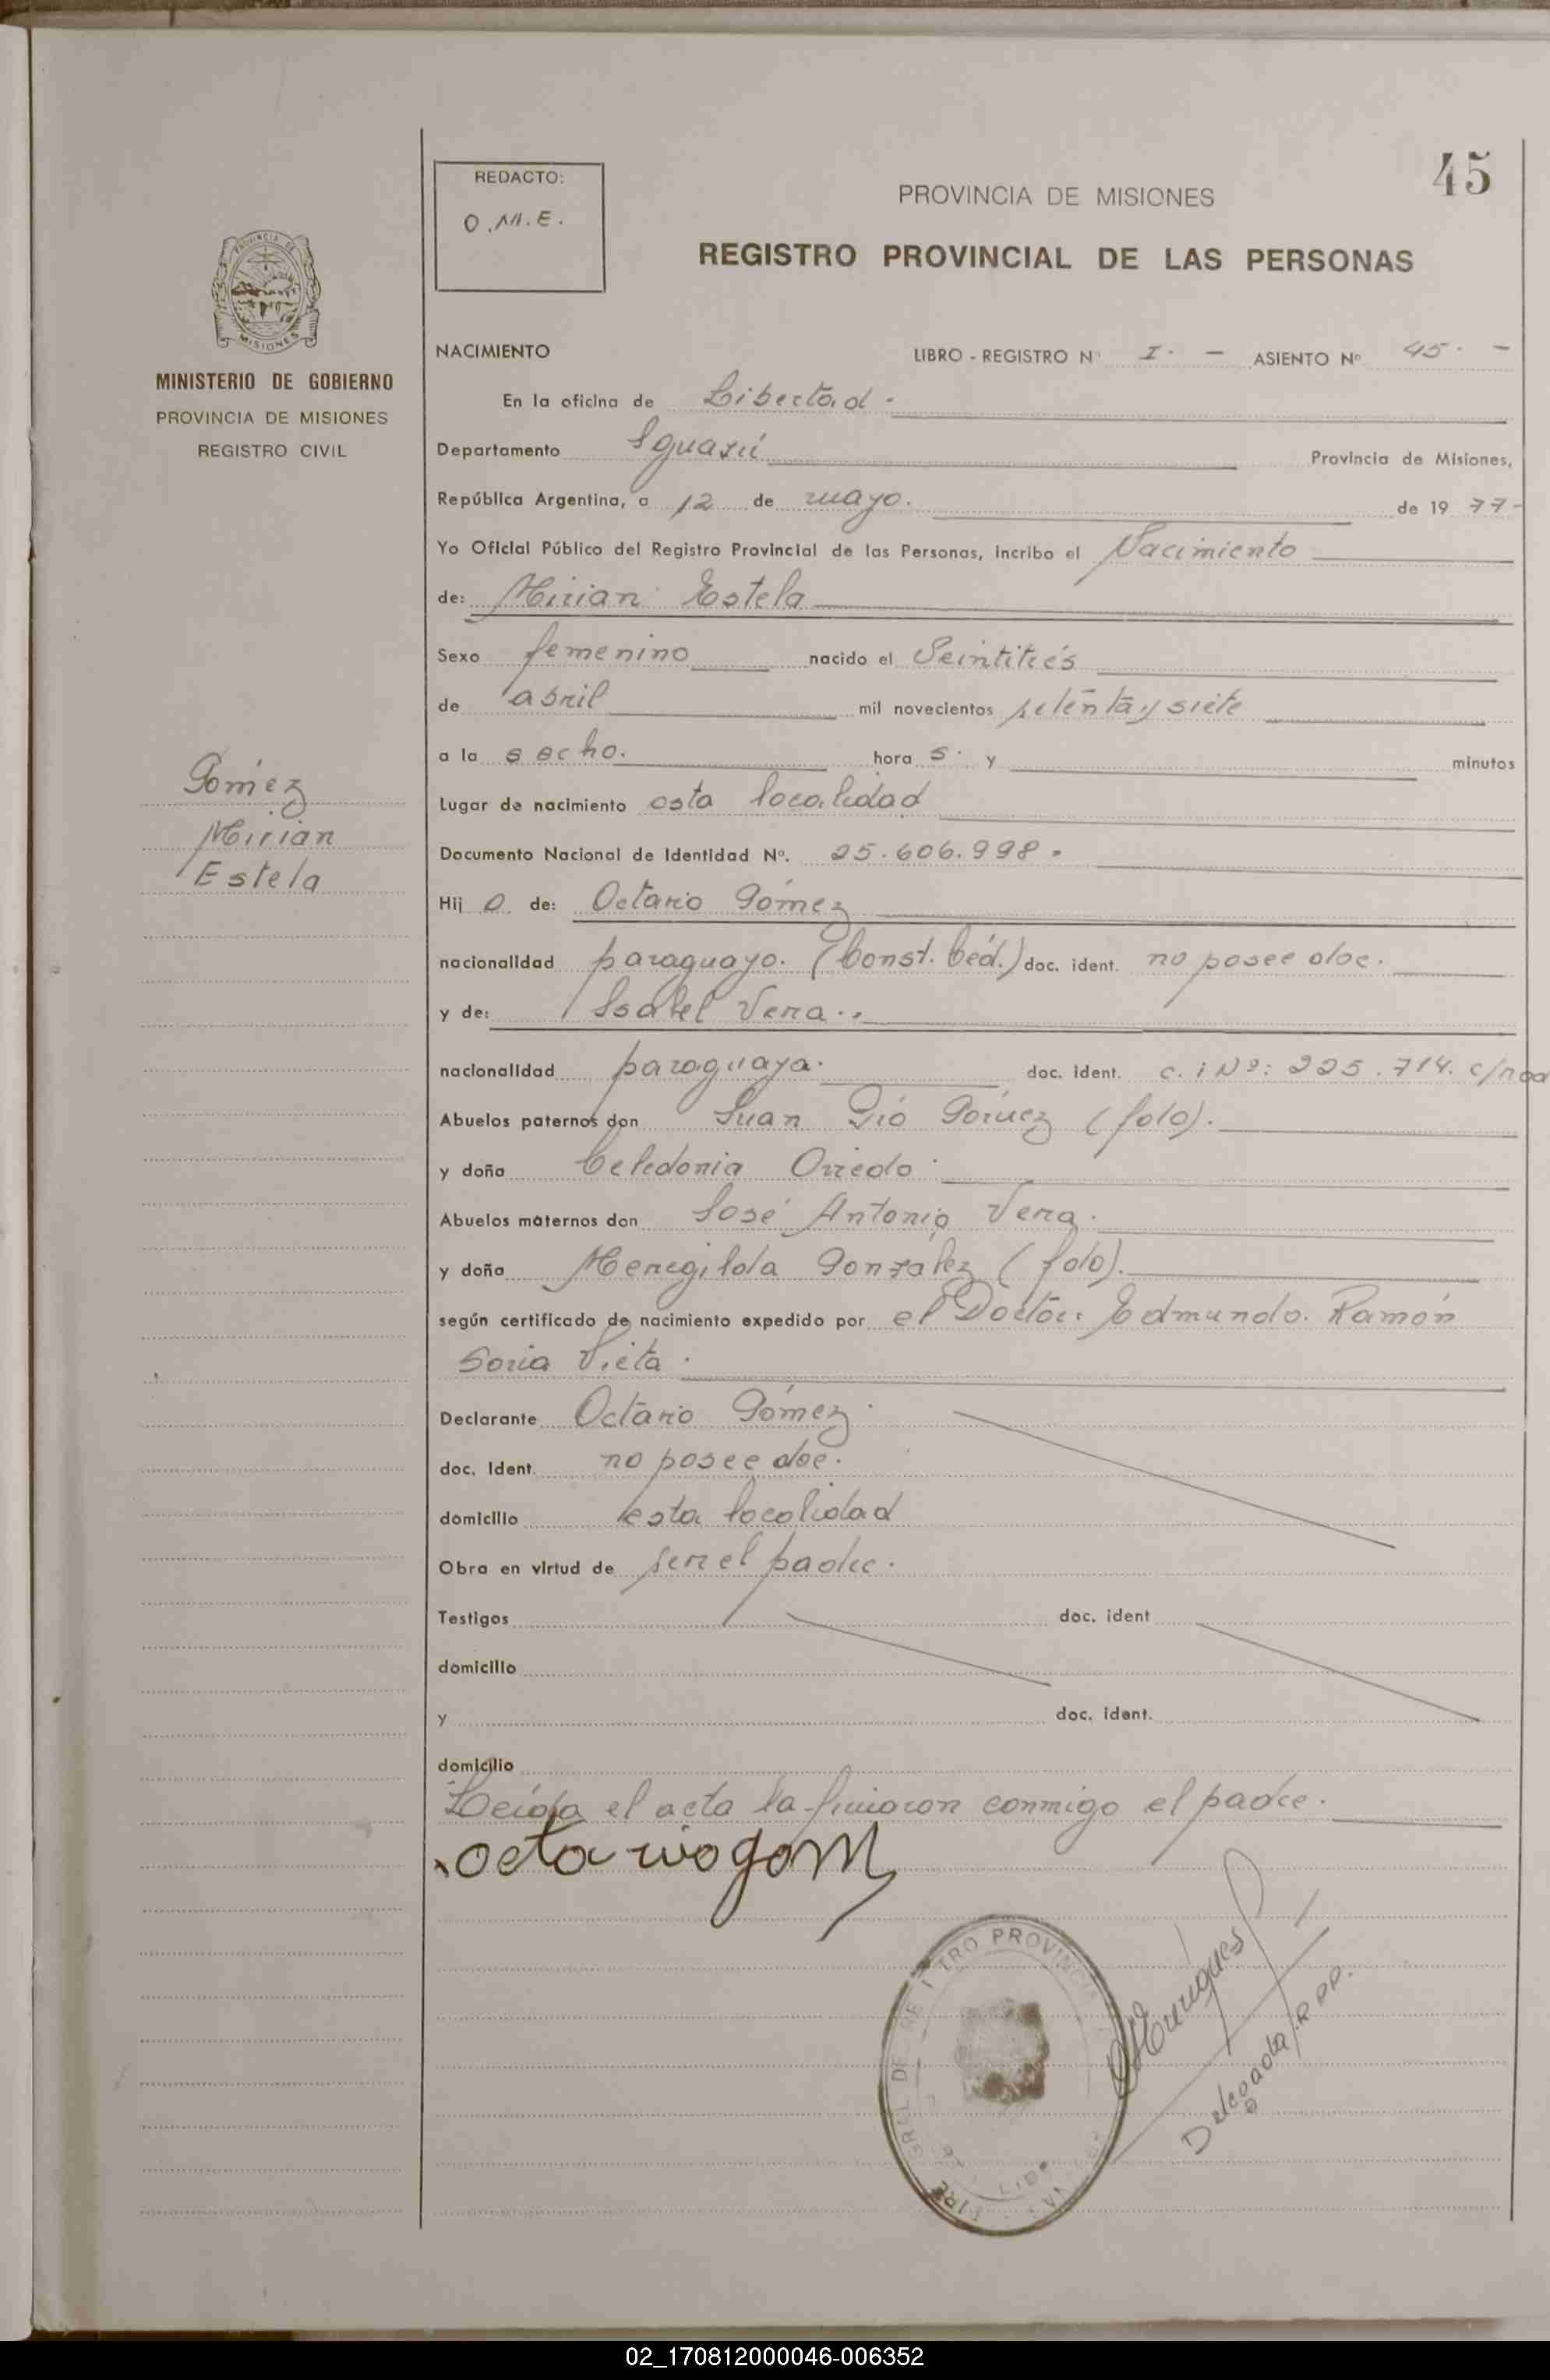 45
REDACTO:
O.M.E.
PROVINCIA DE MISIONES
REGISTRO PROVINCIAL DE LAS PERSONAS
MISIONES
MINISTERIO DE GOBIERNO
PROVINCIA DE MISIONES
REGISTRO CIVIL
Gómez
Mirian
Estela
NACIMIENTO LIBRO - REGISTRO Nº I. - ASIENTO Nº. 45. -
En la oficina de Libertad.
Departamento Iguazú Provincia de Misiones,
República Argentina, a 12 de mayo. de 19 77-
Yo Oficial Público del Registro Provincial de las Personas, incribo el Nacimiento
de: Mirian Estela
Sexo femenino nacido el Veintitrés
de abril mil novecientos setenta y siete
a la s ocho. hora s. y minutos
Lugar de nacimiento esta localidad
Documento Nacional de Identidad Nº. 25.606.998.
Hij a de: Octavio Gómez
nacionalidad paraguayo. (Const. Céd.) doc. ident. no posee doc.
y de: Isabel Vera..
nacionalidad paraguaya. doc. ident. c. i Nº: 225.714.
Abuelos paternos don Juan Pío Gómez (fdo).
y doña Celedonia Oviedo.
Abuelos maternos don José Antonio Vera.
y doña Meregilda González (fdo).
según certificado de nacimiento expedido por el Doctor: Edmundo Ramón
Soria Vieta.
Declarante Octavio Gómez.
doc. Ident. no posee doc.
domicilio esta localidad
Obra en virtud de ser el padre.
Testigos doc. ident
domicilio
y doc. ident.
domicilio
Leída el acta la firmaron conmigo el padre.
octavio gom
Delegada R.P.P.
02_170812000046-006352